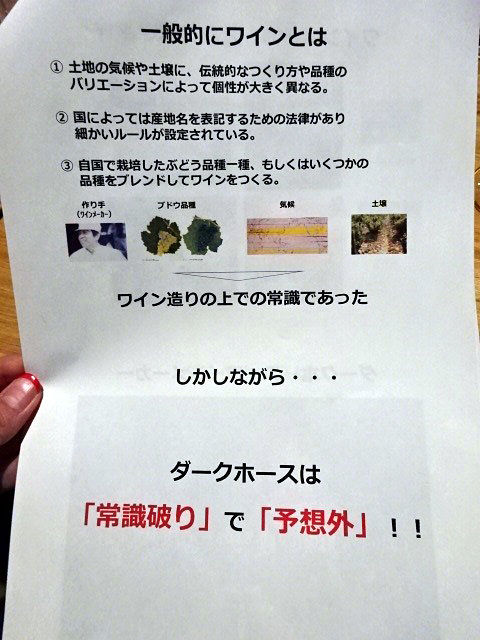 一般的にワインとは
① 土地の気候や土壌に、伝統的なつくり方や品種の
バリエーションによって個性が大きく異なる。
② 国によっては産地名を表記するための法律があり
細かいルールが設定されている。
③ 自国で栽培したぶどう品種一種、もしくはいくつかの
品種をブレンドしてワインをつくる。
作り手 ブドウ品種 気候 土壌
(ワインメーカー)
ワイン造りの上での常識であった
しかしながら・・・
ダークホースは
「常識破り」で「予想外」！！